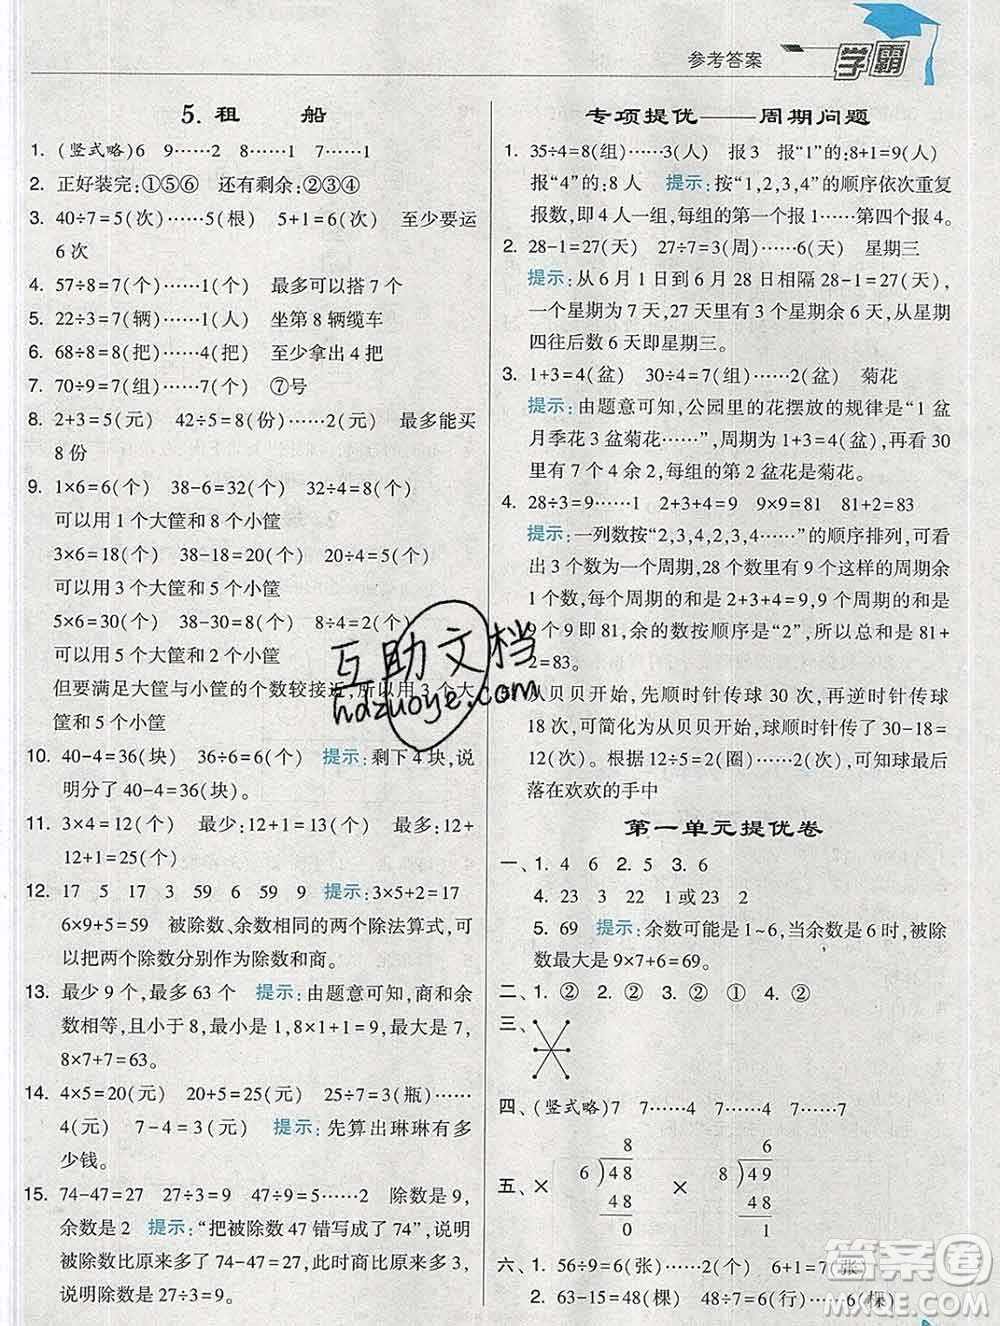 参考答案
学霸
5. 租 船
1. (竖式略)6 9……2 8……1 7……1
2. 正好装完:①⑤⑥ 还有剩余:②③④
3. 40÷7=5(次)……5(根) 5+1=6(次) 至少要运
6 次
4. 57÷8=7(个)……1(根) 最多可以搭 7 个
5. 22÷3=7(辆)……1(人) 坐第 8 辆缆车
6. 68÷8=8(把)……4(把) 至少拿出 4 把
7. 70÷9=7(组)……7(个) ⑦号
8. 2+3=5(元) 42÷5=8(份)……2(元) 最多能买
8 份
9. 1×6=6(个) 38-6=32(个) 32÷4=8(个)
可以用 1 个大筐和 8 个小筐
3×6=18(个) 38-18=20(个) 20÷4=5(个)
可以用 3 个大筐和 5 个小筐
5×6=30(个) 38-30=8(个) 8÷4=2(个)
可以用 5 个大筐和 2 个小筐
但要满足大筐与小筐的个数较接近,所以用 3 个大
筐和 5 个小筐
10. 40-4=36(块) 36÷6=6(个) 提示:剩下 4 块,说
明分了 40-4=36(块)。
11. 3×4=12(个) 最少:12+1=13(个) 最多:12+
12+1=25(个)
12. 17 5 17 3 59 6 59 9 提示:3×5+2=17
6×9+5=59 被除数、余数相同的两个除法算式,可
以把两个除数分别作为除数和商。
13. 最少 9 个,最多 63 个 提示:由题意可知,商和余
数相等,且小于 8,最小是 1,8×1+1=9,最大是 7,
8×7+7=63。
14. 4×5=20(元) 20+5=25(元) 25÷7=3(瓶)……
4(元) 7-4=3(元) 提示:先算出琳琳有多
少钱。
15. 74-47=27 27÷3=9 47÷9=5……2 除数是 9,
余数是 2 提示:“把被除数 47 错写成了 74”,说明
被除数比原来多了 74-47=27,此时商比原来多 3,
说明除数是 27÷3=9。
专项提优——周期问题
1. 35÷4=8(组)……3(人) 报 3 报“1”的:8+1=9(人)
报“4”的:8 人 提示:按“1,2,3,4”的顺序依次重复
报数,即 4 人一组,每组的第一个报 1……第四个报 4。
2. 28-1=27(天) 27÷7=3(周)……6(天) 星期三
提示:从 6 月 1 日到 6 月 28 日相隔 28-1=27(天),
一个星期为 7 天,27 天为 3 个星期余 6 天,从星期
四往后数 6 天即星期三。
3. 1+3=4(盆) 30÷4=7(组)……2(盆) 菊花
提示:由题意可知,公园里的花摆放的规律是“1 盆
月季花 3 盆菊花……”,周期为 1+3=4,再看 30
里有 7 个 4 余 2,每组的第 2 盆花是菊花。
4. 28÷3=9……1 2+3+4=9 9×9=81 81+2=83
提示:一列数按“2,3,4,2,3,4……”的顺序排列,可
看出 3 个数为一个周期,28 个数里有 9 个周期余
1 个数,每个周期的和是 2+3+4=9,9 个周期的和
9 个 9 即 81,余的数按顺序是“2”,所以总和是 81+
2=83。
从贝贝开始,先顺时针传球 30 次,再逆时针传球
18 次,可简化为从贝贝开始,球顺时针传了 30-18=
12(次)。根据 12÷5=2(圈)……2(次),可知球最后
落在欢欢的手中
第一单元提优卷
一、1. 4 6 2. 5 3. 6
4. 23 23 22 1 或 23 2
5. 69 提示:余数可能是 1~6,当余数是 6 时,被除
数最大是 9×7+6=69。
二、1. ② 2. ③ 3. ② ① 4. ②
三、
四、(竖式略)7 7……4 7……4 7……7
五、× 8 6)48 48 0 × 6 8)49 48 1
六、1. 56÷9=6(张)……2(个) 6+1=7(张)
2. 63-15=48(棵) 48÷7=6(行)……6(棵)
互助文档
hdzuoye.com
答案圈
MXQE.COM